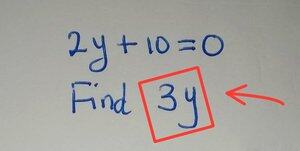 2y+10=0
Find 3y